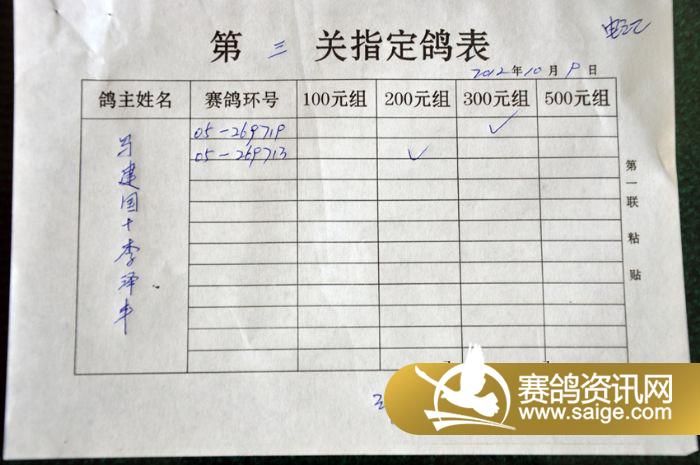 第 三 关指定鸽表
2012 年 10 月 9 日
鸽主姓名 赛鸽环号 100元组 200元组 300元组 500元组
05-269719 ✓
05-269713 ✓
马建国+李泽丰
第一联 粘贴
赛鸽资讯网
www.saige.com